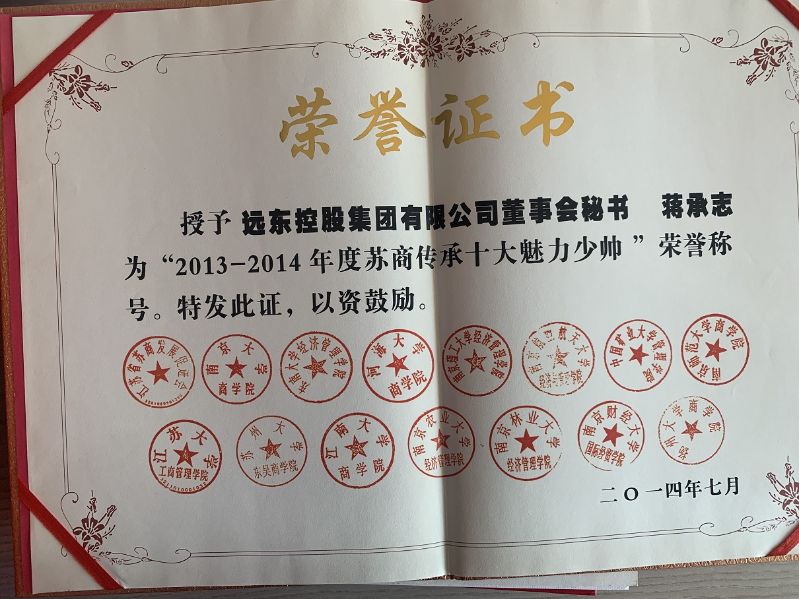 荣誉证书
授予 远东控股集团有限公司董事会秘书 蒋承志
为“2013-2014年度苏商传承十大魅力少帅”荣誉称
号。特发此证，以资鼓励。
江苏省苏商发展促进会
南京大学
商学院
东南大学经济管理学院
河海大学
商学院
南京理工大学经济管理学院
南京航空航天大学
经济与管理学院
中国矿业大学管理学院
南京师范大学商学院
江苏大学
工商管理学院
苏州大学
东吴商学院
江南大学
商学院
南京农业大学
经济管理学院
南京林业大学
经济管理学院
南京财经大学
国际经贸学院
扬州大学商学院
二〇一四年七月